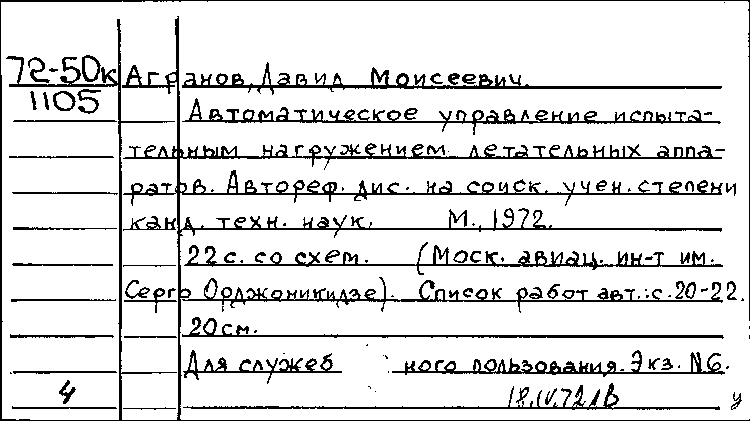 72-50к Агранов, Давид Моисеевич.
1105
Автоматическое управление испыта-
тельным нагружением летательных аппа-
ратов. Автореф. дис. на соиск. учен. степени
канд. техн. наук. М., 1972.
22 с. со схем. (Моск. авиац. ин-т им.
Серго Орджоникидзе). Список работ авт.: с. 20-22.
20 см.
Для служебного пользования. Экз. №6.
4 18.IV.72 ЛВ у